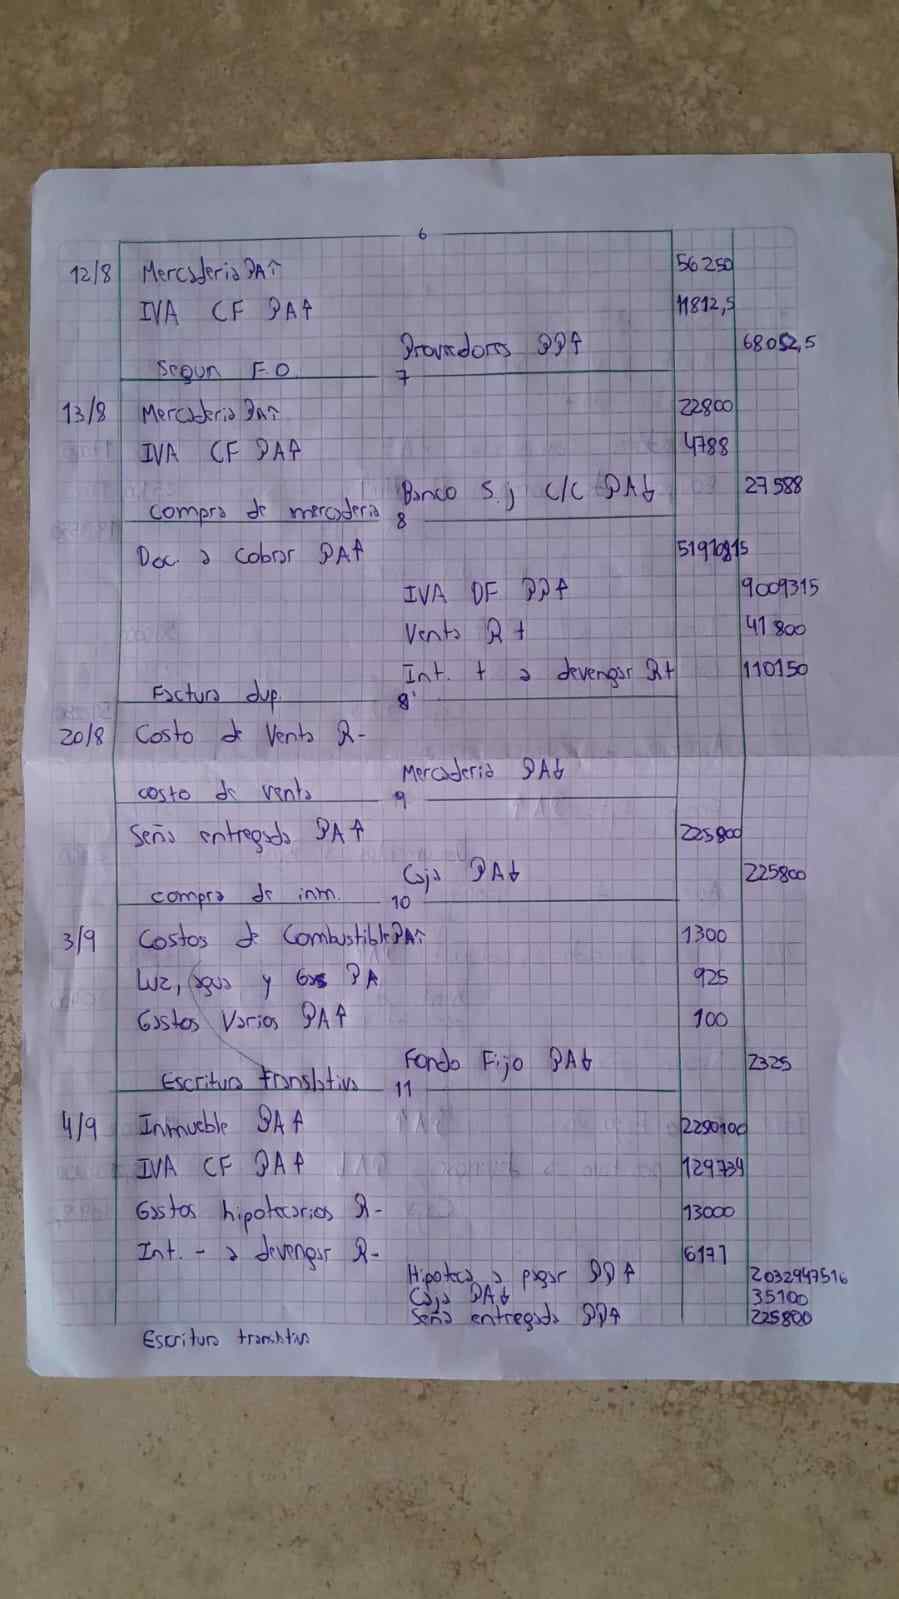 6
12/8 Mercaderia PA↑ 56250
IVA CF PA↑ 11812,5
Proveedores PP↑ 68052,5
Segun F.O. 7
13/8 Mercaderia PA↑ 22800
IVA CF PA↑ 4788
Banco S.J C/C PA↓ 27588
compra de mercaderia 8
Doc. a cobrar PA↑
IVA DF PP↑ 9009315
Venta R+ 41800
Int. + a devengar R+ 110150
Factura dup. 8'
20/8 Costo de Venta R-
Mercaderia PA↓
costo de venta 9
Seña entregada PA↑ 225800
Caja PA↓ 225800
compra de inm. 10
3/9 Costos de Combustible PA↑ 1300
Luz, agua y Gas PA 925
Gastos Varios PA↑ 100
Fondo Fijo PA↓ 2325
Escritura translativa 11
4/9 Inmueble PA↑ 2290100
IVA CF PA↑ 129739
Gastos hipotecarios R- 13000
Int. - a devengar R- 6177
Hipoteca a pagar PP↑ 2032947516
Caja PA↓ 35100
Seña entregada PP↑ 225800
Escritura translativa